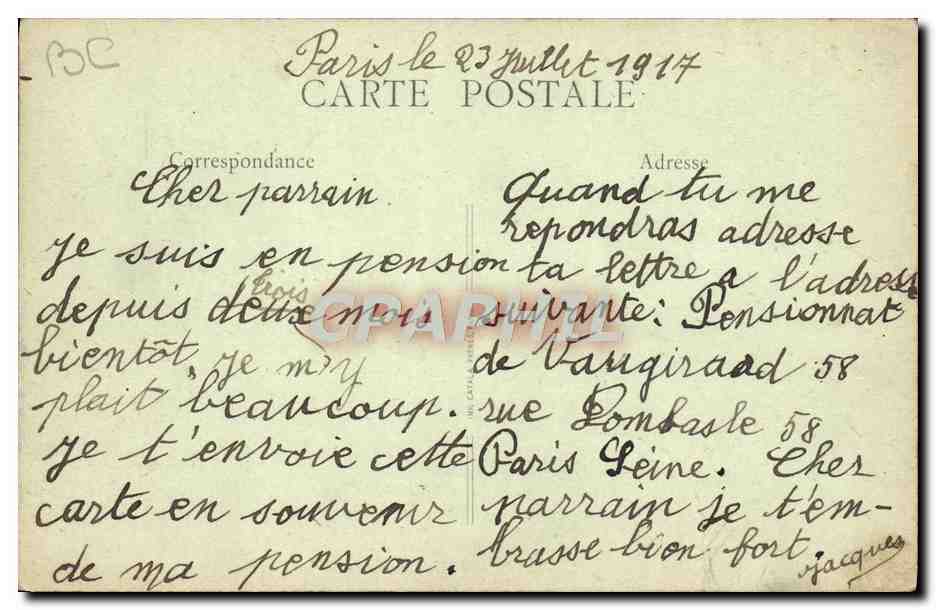 BC
Paris le 23 Juillet 1917
CARTE POSTALE
Correspondance
Cher parrain.
je suis en pension
depuis deux trois mois
bientôt, je m'y
plait beaucoup.
je t'envoie cette
carte en souvenir
de ma pension.
Adresse
Quand tu me
repondras adresse
ta lettre a l'adresse
suivante: Pensionnat
de Vaugiraad 58
rue Dombasle 58
Paris Seine. Cher
parrain je t'em-
brasse bien fort.
Jacques
CPAPHIL